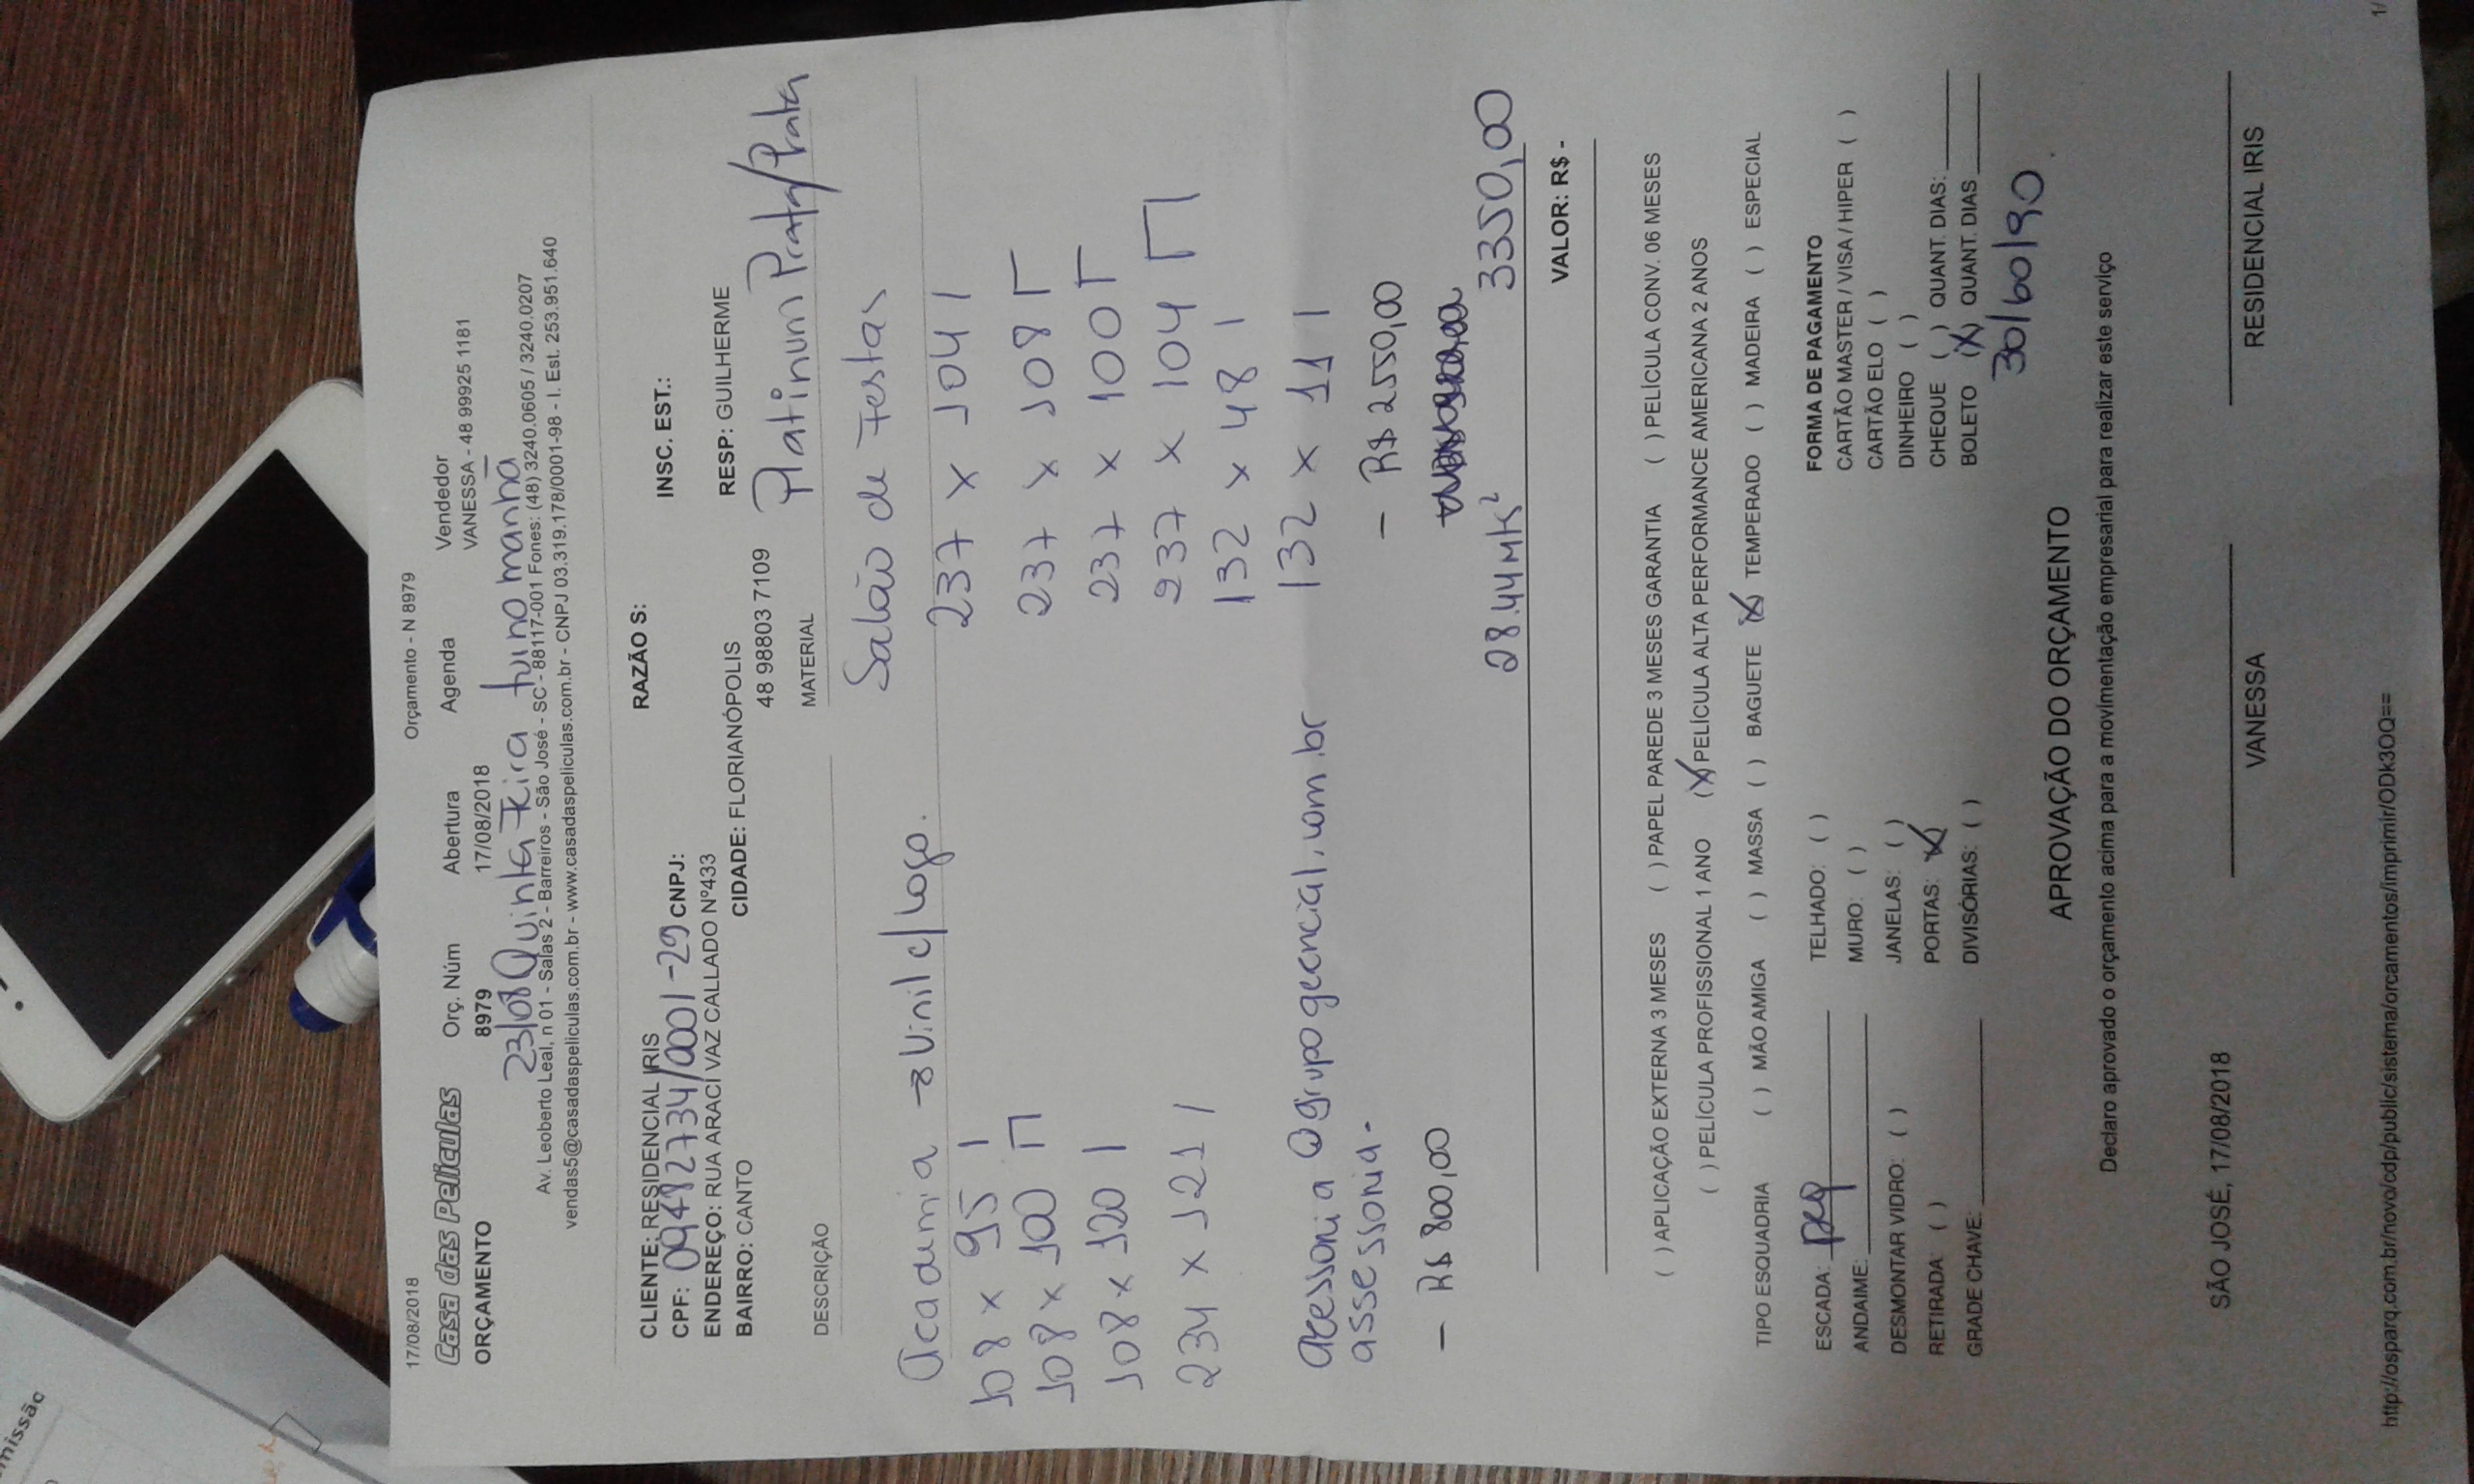 17/08/2018 Orçamento - N 8979
Casa das Películas Orç. Núm Abertura Agenda Vendedor
ORÇAMENTO 8979 17/08/2018 VANESSA - 48 99925 1181
23/08 Quinta Feira turno manhã
Av. Leoberto Leal, n 01 - Salas 2 - Barreiros - São José - SC - 88117-001 Fones: (48) 3240.0605 / 3240.0207
vendas5@casadaspeliculas.com.br - www.casadaspeliculas.com.br - CNPJ 03.319.178/0001-98 - I. Est. 253.951.640
CLIENTE: RESIDENCIAL IRIS RAZÃO S:
CPF: 09482734/0001-29 CNPJ: INSC. EST.:
ENDEREÇO: RUA ARACÍ VAZ CALLADO Nº433
BAIRRO: CANTO CIDADE: FLORIANÓPOLIS RESP: GUILHERME
48 98803 7109
DESCRIÇÃO MATERIAL Platinum Prata/Prata
Academia → Vinil c/ logo.
108 x 95 |
108 x 100 Π
108 x 120 |
234 x 121 |
Salão de Festas
237 x 104 |
237 x 108 Γ
237 x 100 Γ
237 x 104 Π
132 x 48 |
132 x 11 |
acessoria@grupogecncial.com.br
assessoria-
- R$ 800,00
- R$ 2550,00
28.44 Mts² 3350,00
VALOR: R$ -
( ) APLICAÇÃO EXTERNA 3 MESES ( ) PAPEL PAREDE 3 MESES GARANTIA ( ) PELÍCULA CONV. 06 MESES
( ) PELÍCULA PROFISSIONAL 1 ANO (X) PELÍCULA ALTA PERFORMANCE AMERICANA 2 ANOS
TIPO ESQUADRIA ( ) MÃO AMIGA ( ) MASSA ( ) BAGUETE (X) TEMPERADO ( ) MADEIRA ( ) ESPECIAL
ESCADA: peq TELHADO: ( )
ANDAIME: MURO: ( )
DESMONTAR VIDRO: ( ) JANELAS: ( )
RETIRADA: ( ) PORTAS: (X)
GRADE CHAVE: DIVISÓRIAS: ( )
FORMA DE PAGAMENTO
CARTÃO MASTER / VISA / HIPER ( )
CARTÃO ELO ( )
DINHEIRO ( )
CHEQUE ( ) QUANT. DIAS:
BOLETO (X) QUANT. DIAS
30/60/90
APROVAÇÃO DO ORÇAMENTO
Declaro aprovado o orçamento acima para a movimentação empresarial para realizar este serviço
SÃO JOSÉ, 17/08/2018
VANESSA
RESIDENCIAL IRIS
http://osparq.com.br/novo/cdp/public/sistema/orcamentos/imprimir/ODk3OQ== 1/